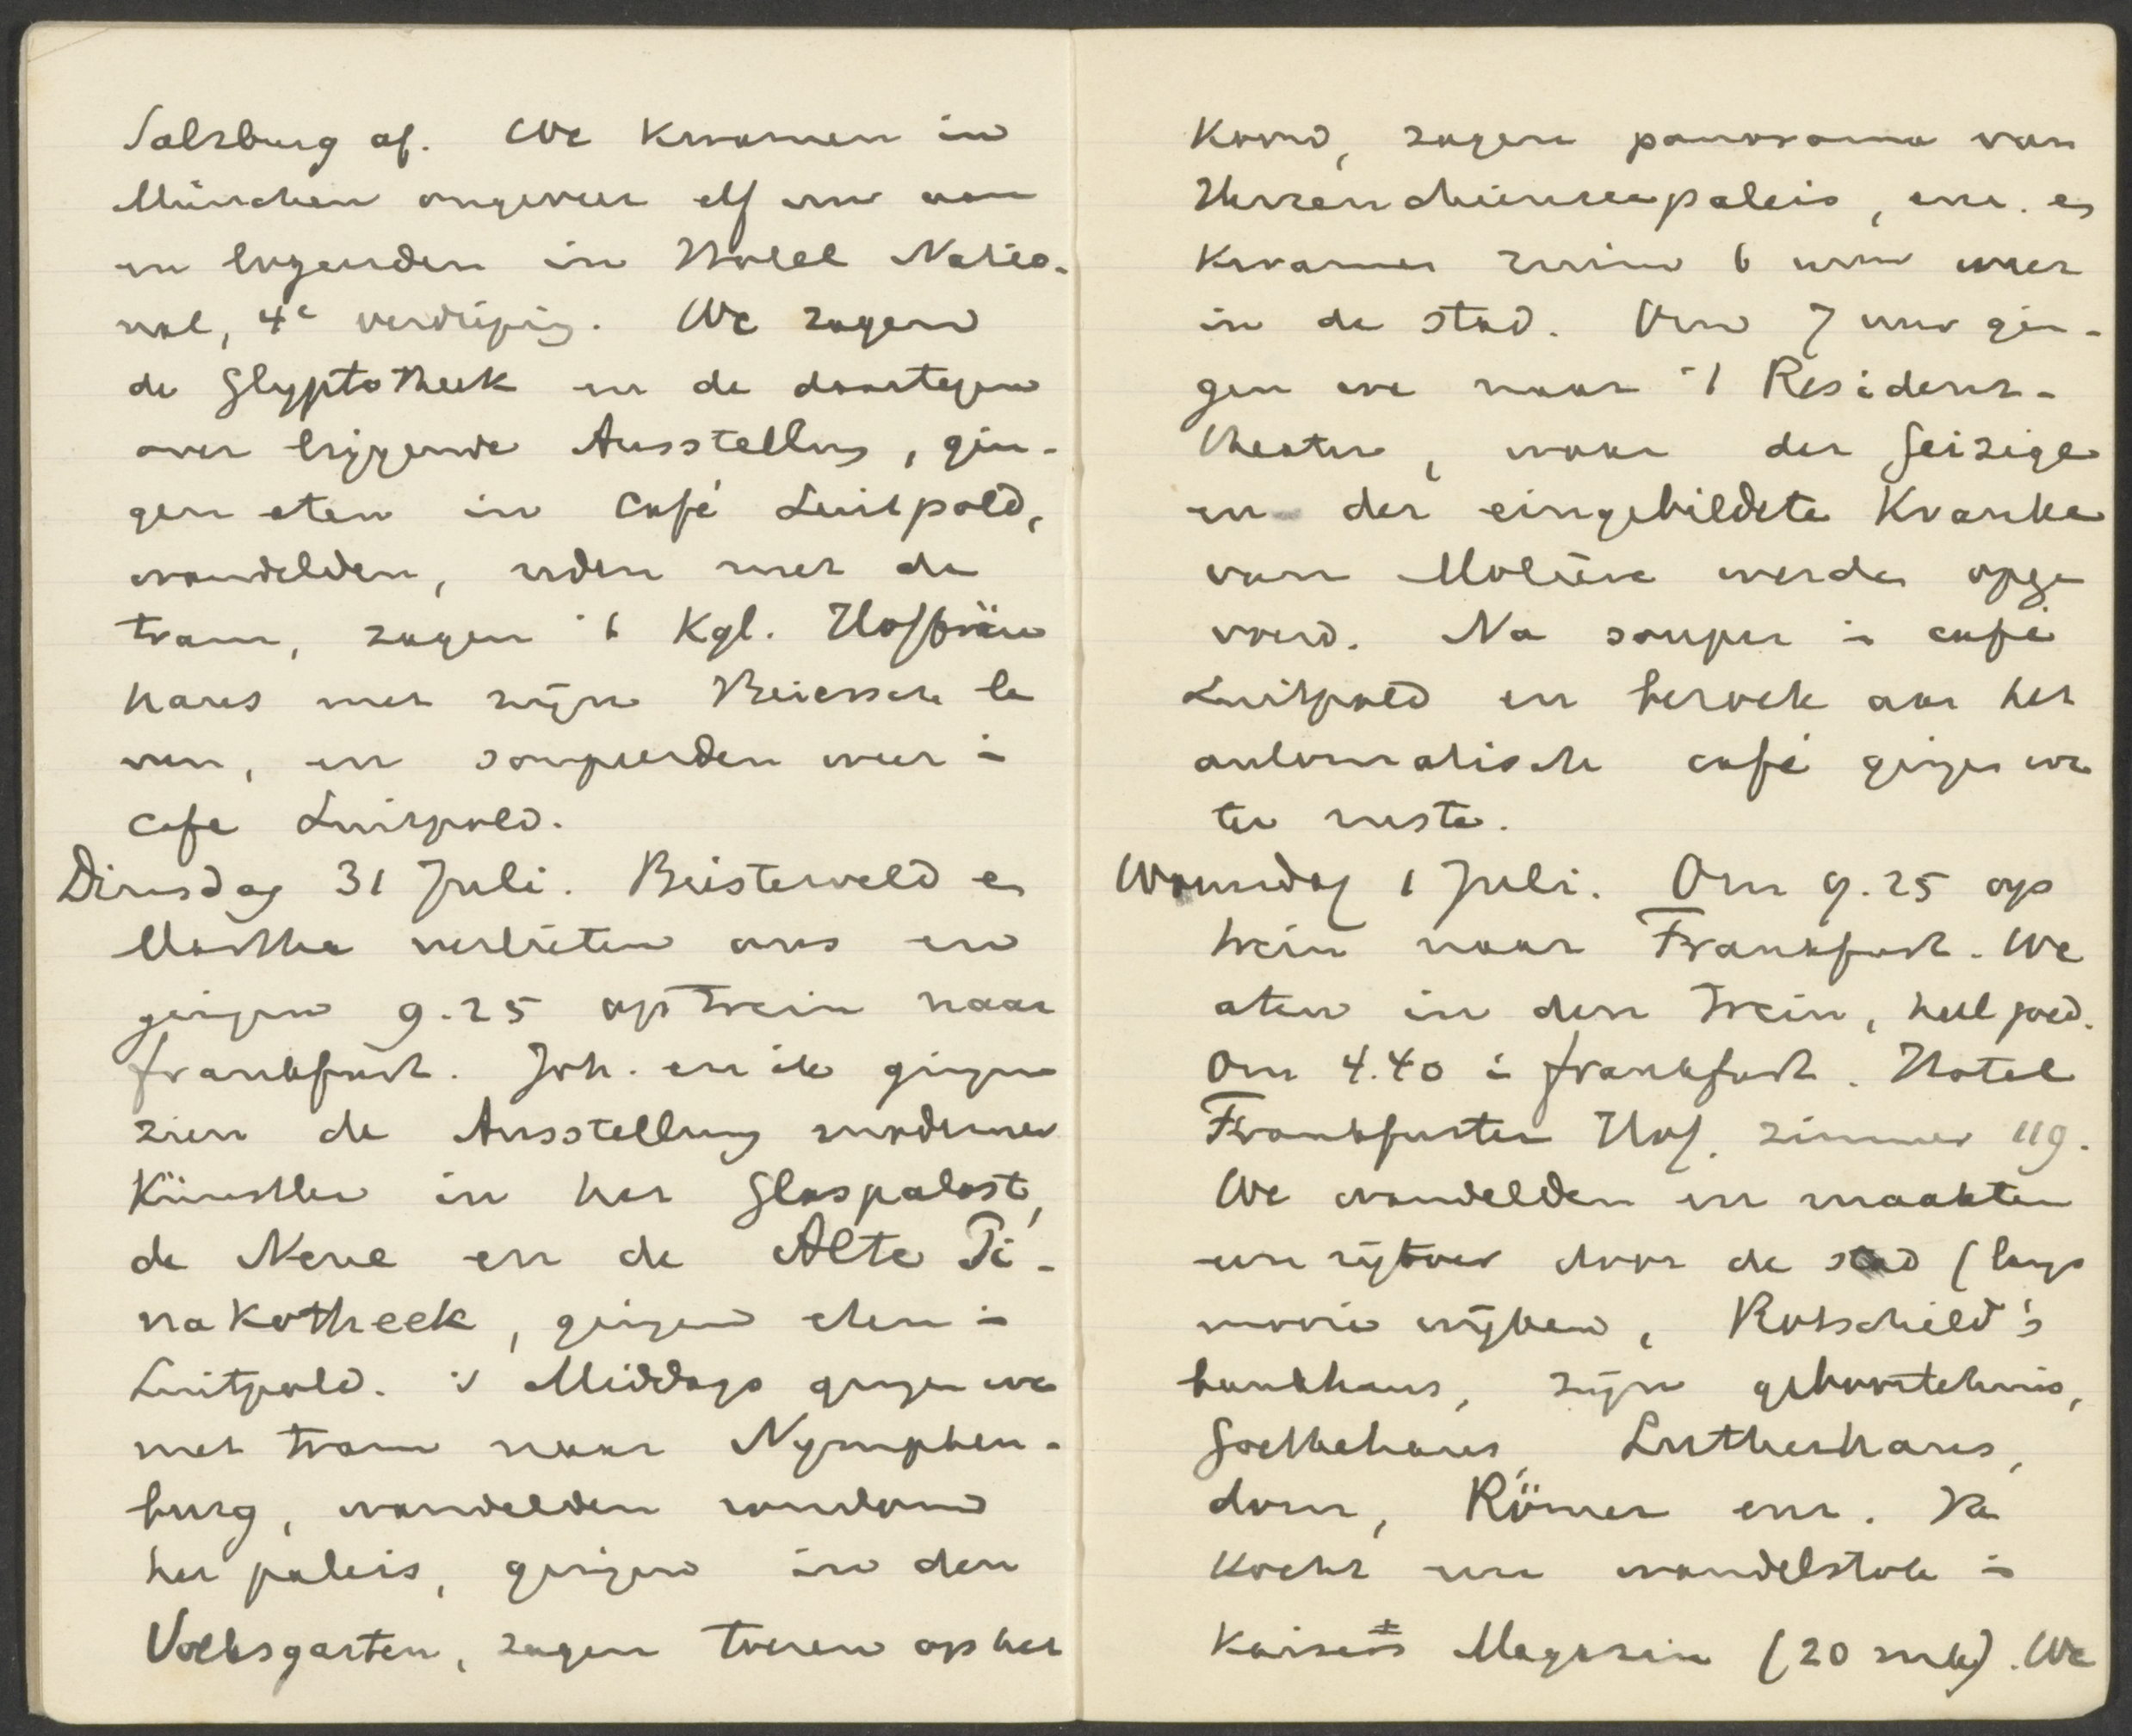 Salzburg af. We kwamen in
München ongeveer elf uur aan
en logeerden in Hotel Natio-
nal, 4e verdieping. We zagen
de Glyptotheek en de daartegen
over liggende Ausstellung, gin-
gen eten in Café Luitpold,
wandelden, reden met de
tram, zagen 't Kgl. Hofbräu
haus met zijn Beiersch le
ven, en soupeerden weer in
Cafe Luitpold.
Dinsdag 31 Juli. Beisterveld en
Martha verlieten ons en
gingen 9.25 op trein naar
Frankfurt. Joh. en ik gingen
zien de Ausstellung moderner
Künstler in het Glaspalast,
de Neue en de Alte Pi-
nakotheek, gingen eten in
Luitpold. 's Middags gingen we
met tram naar Nymphen-
burg, wandelden rondom
het paleis, gingen in den
Volksgarten, zagen toeren op het
koord, zagen panorama van
Herrenchiemseepaleis, enz. en
kwamen ruim 6 uur weer
in de stad. Om 7 uur gin-
gen we naar 't Residenz-
theater, waar der Geizige
en der eingebildete Kranke
van Molière werden opge
voerd. Na souper in café
Luitpold en bezoek aan het
automatische café gingen we
ter ruste.
Woensdag 1 Juli. Om 9.25 op
trein naar Frankfurt. We
aten in den trein, heel goed.
Om 4.40 in Frankfurt. Hotel
Frankfurter Hof. zimmer 119.
We wandelden en maakten
een rijtoer door de stad (langs
mooie wijken, Rotschild's
bankhaus, zijn geboortehuis,
Goethehaus, Lutherhaus,
dom, Römer enz. Pa
kocht een wandelstok in
Kaisers Magazin (20 mk). We